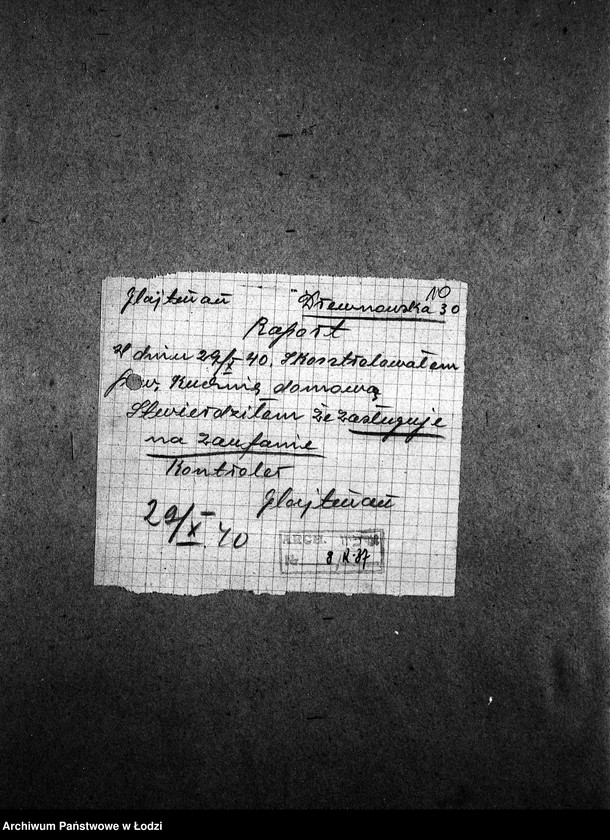 10
Hajtman Drewnowska 30
Raport
W dniu 29/X 40. Skontrolowałem
pow. Kuchnię domową
Stwierdziłem że zasługuje
na zaufanie
Kontroler
Hajtman
29/X.40
ARCH.
Nr. 8
Archiwum Państwowe w Łodzi